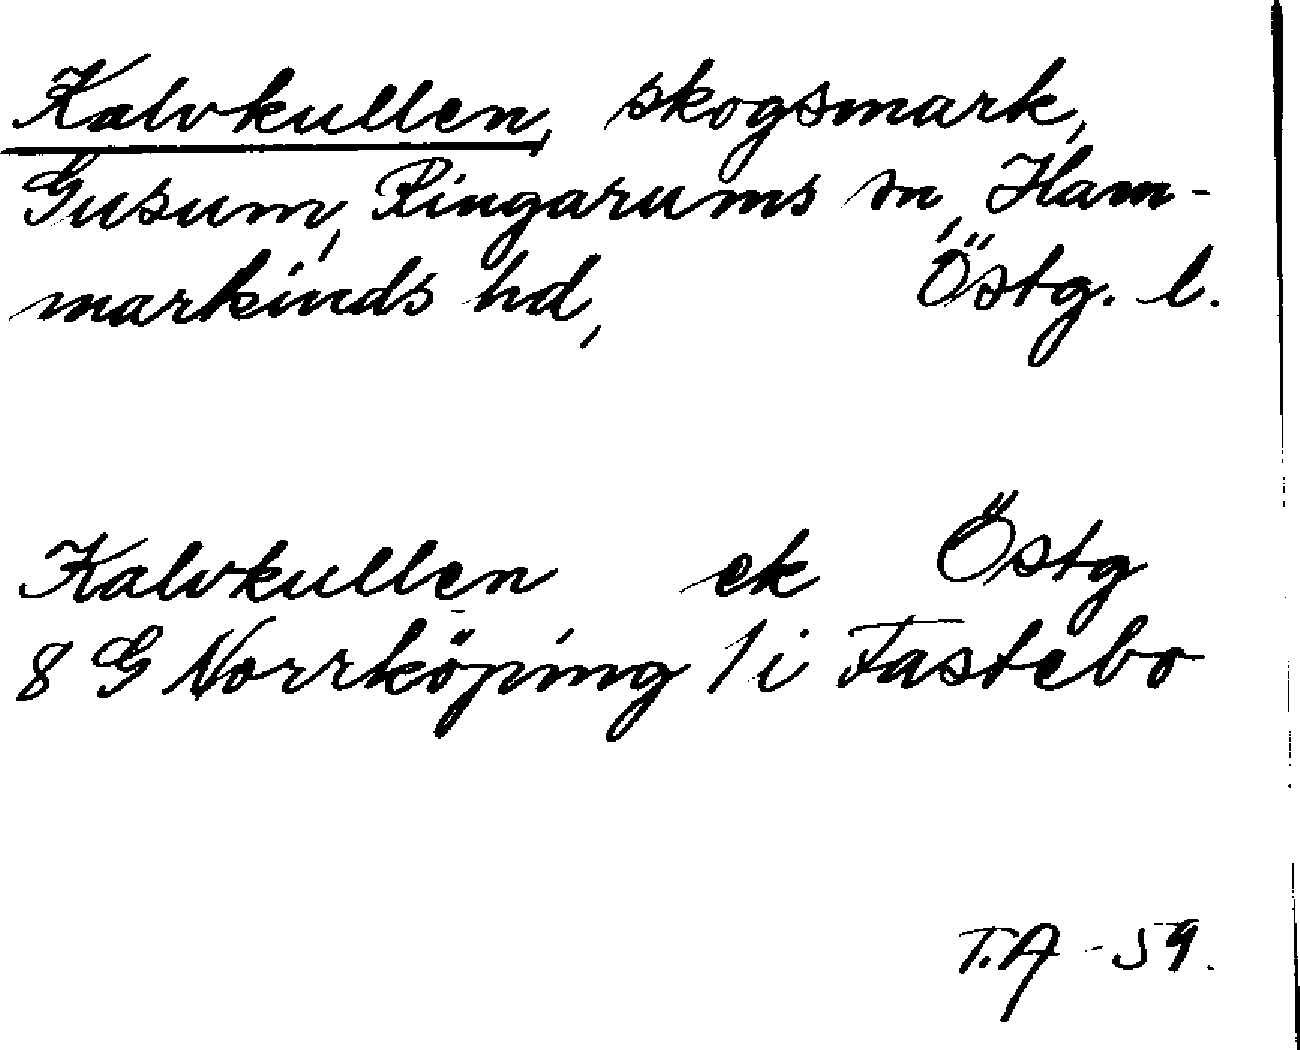 Kalvkullen, skogsmark,
Gusum, Ringarums sn, Ham-
markinds hd, Östg. l.
Kalvkullen ek Östg
8 G Norrköping 1 i Fastebo
T.A -59.